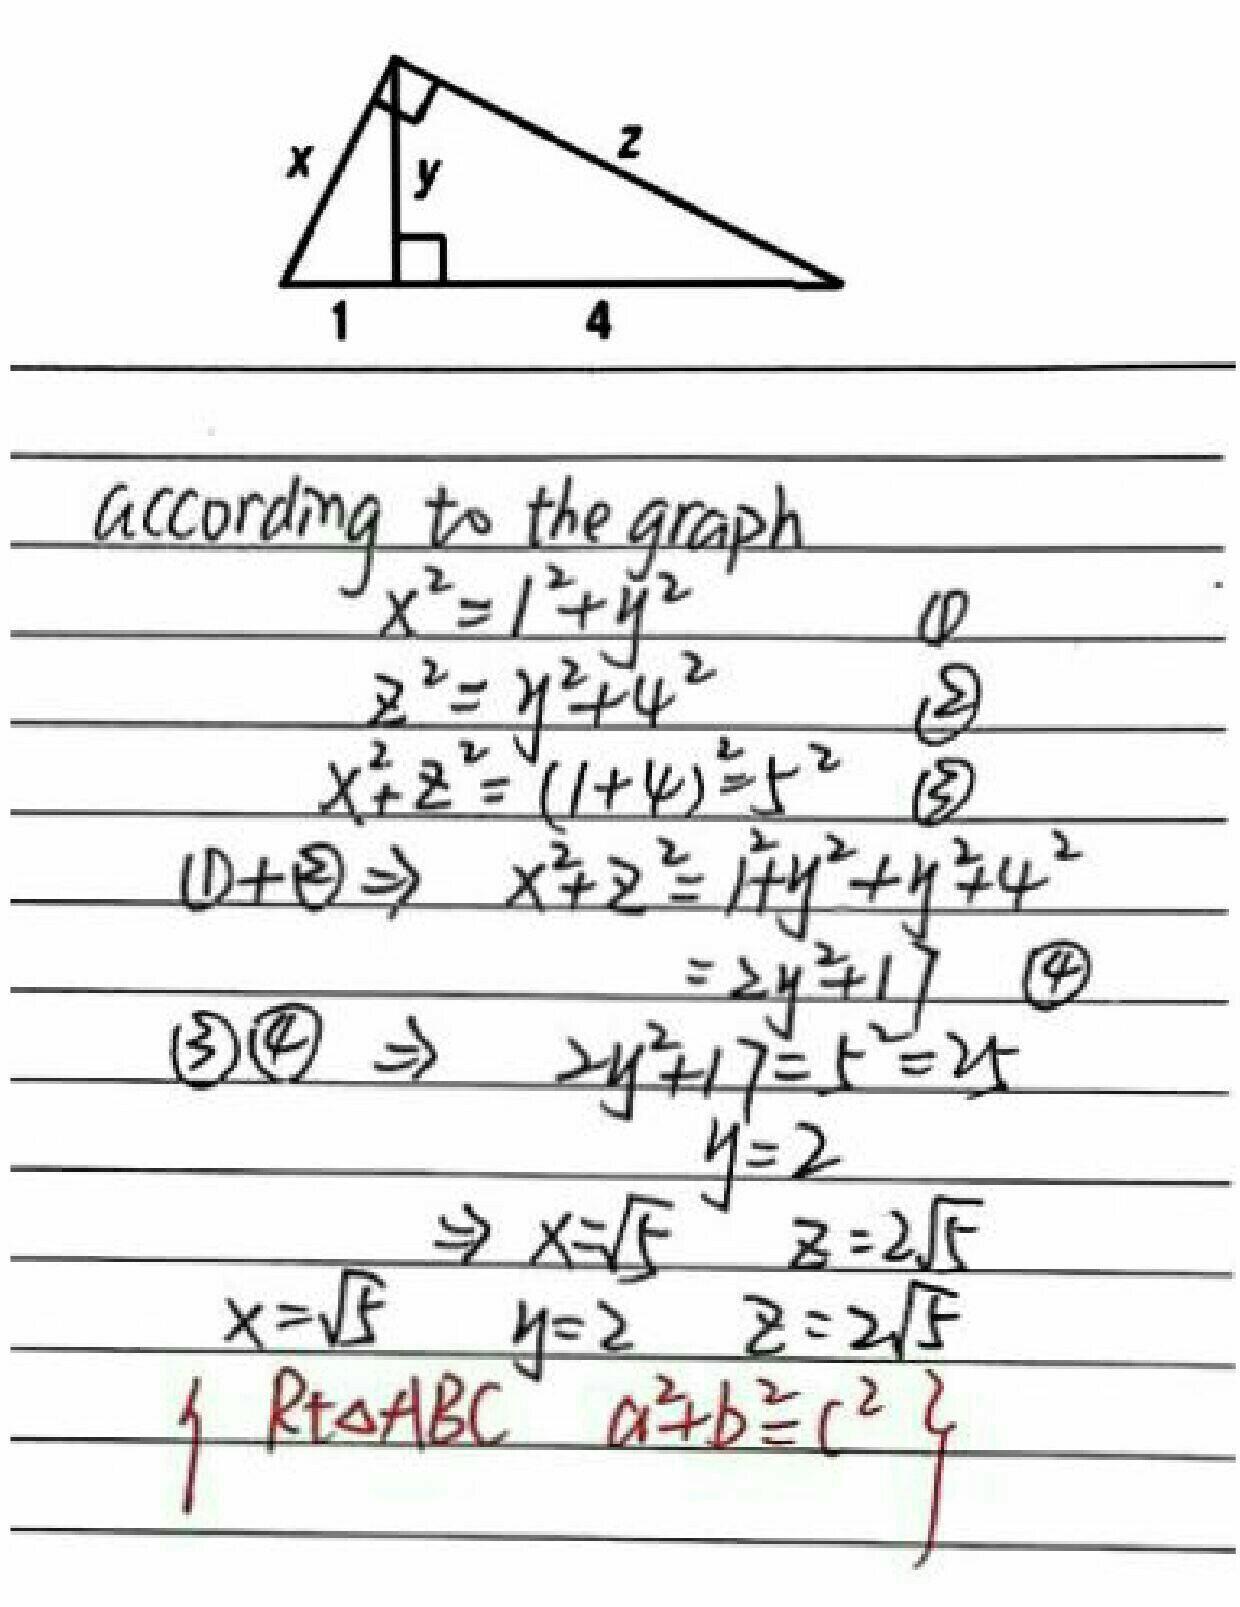 x
y
z
1
4
according to the graph
x² = 1² + y² ①
z² = y² + 4² ②
x² + z² = (1+4)² = 5² ③
① + ② ⇒ x² + z² = 1² + y² + y² + 4²
= 2y² + 17 ④
③④ ⇒ 2y² + 17 = 5² = 25
y = 2
⇒ x = √5 z = 2√5
x = √5 y = 2 z = 2√5
{ Rt△ABC a² + b² = c² }